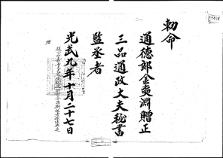 勅命
通德郎金奭淵贈正
三品通政大夫秘書
監丞者
光武九年十月二十七日